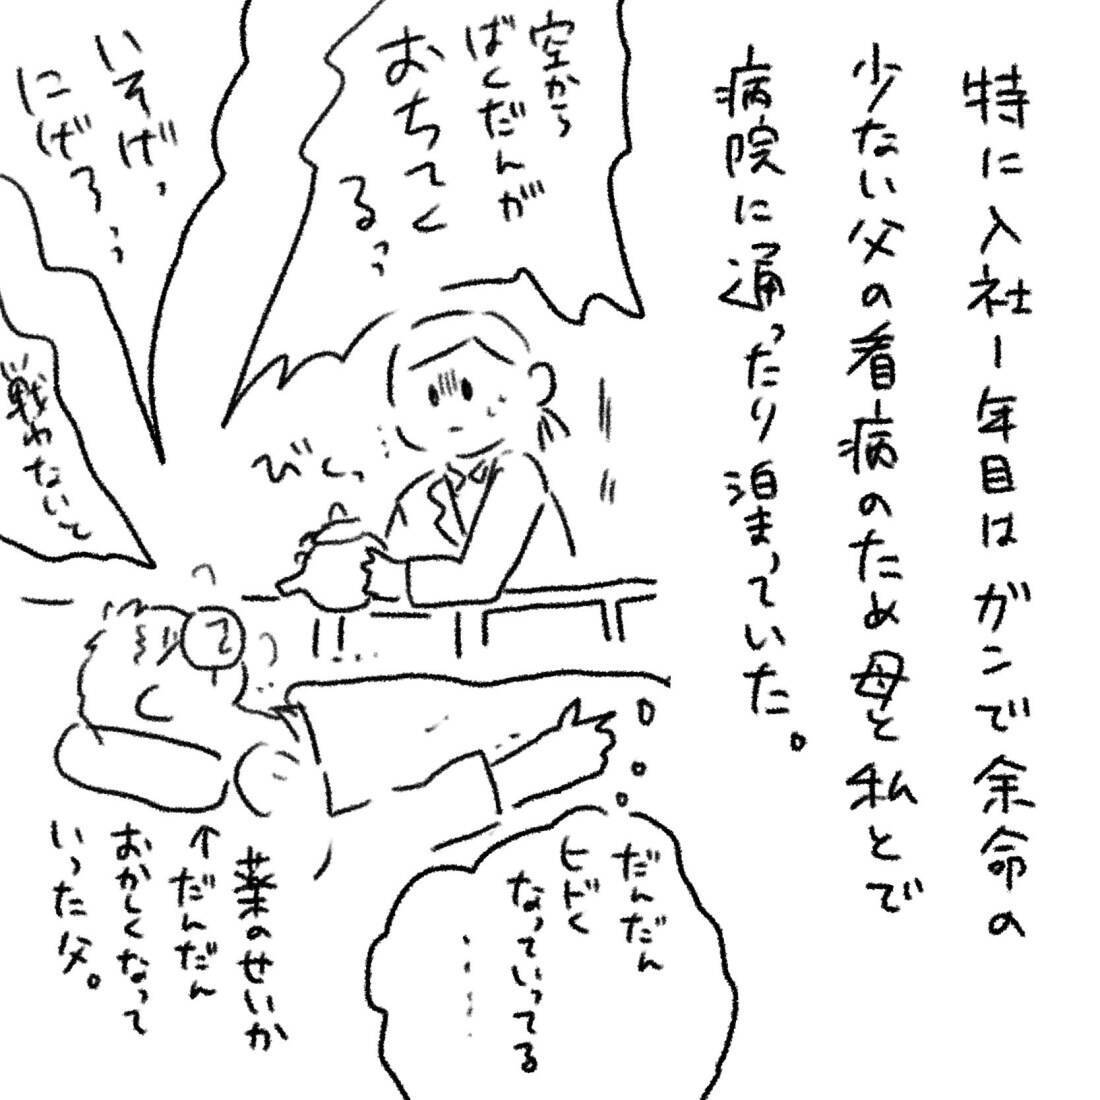 特に入社1年目はガンで余命の
少ない父の看病のため母と私とで
病院に通ったり泊まっていた。
空から
ばくだんが
おちてく
るっ
いそげっ
にげろ…
戦わないと
びくっ
だんだん
ヒドく
なっていってる
……
薬のせいか
↑だんだん
おかしくなって
いった父。